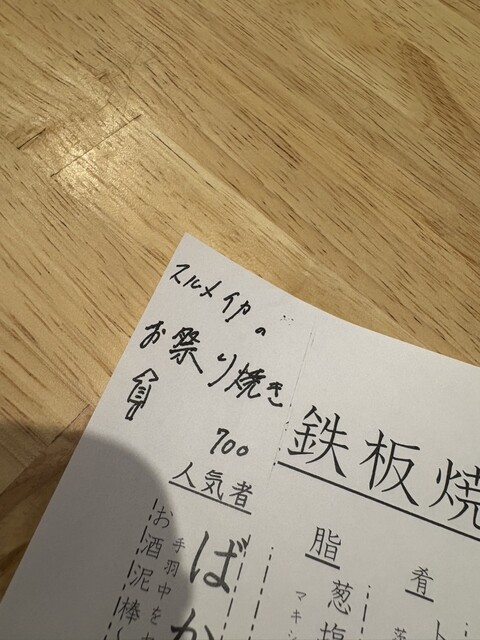 スルメイカの
お祭り焼き
700
人気者
ばか
手羽中を
お酒泥棒
鉄板焼
脂
葱塩
マキシ
肴